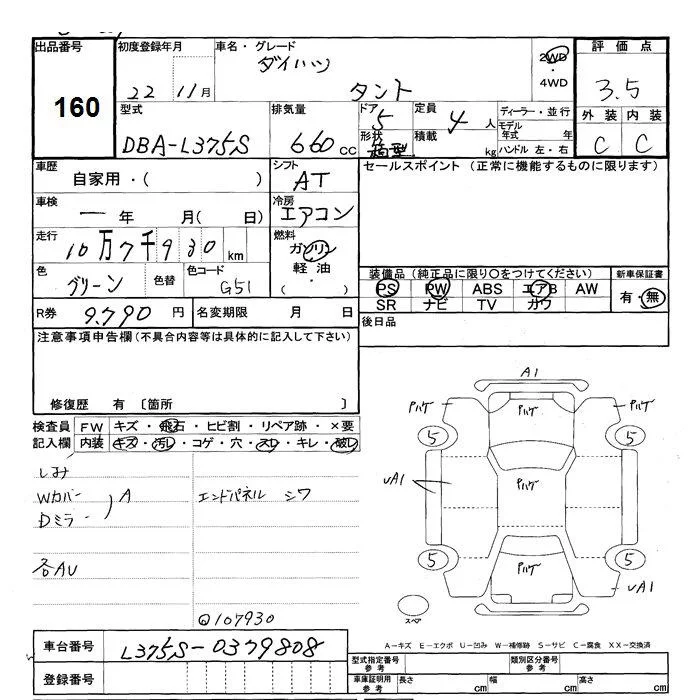 出品番号 初度登録年月 車名・グレード 2WD ・ 4WD 評価点
160 22 11月 ダイハツ タント 3.5
型式 排気量 ドア 定員 ディーラー・並行 外装 内装
DBA-L375S 660 cc 5 4人 モデル年式 年 C C
形状 箱型 積載 kg ハンドル 左・右
車歴 自家用・( ) シフト AT セールスポイント (正常に機能するものに限ります)
車検 一 年 月( 日) 冷房 エアコン
走行 10万7千930 km 燃料 ガソリン 軽油 ( ・ )
色 グリーン 色替 色コード G51 装備品 (純正品に限り〇をつけてください) 新車保証書
PS PW ABS エアB AW 有・無
SR ナビ TV カワ
R券 9.790 円 名変期限 月 日 後日品
注意事項申告欄(不具合内容等は具体的に記入して下さい)
修復歴 有 〔箇所 〕
検査員記入欄 FW キズ・飛石・ヒビ割・リペア跡・×要
内装 キズ・汚レ・コゲ・穴・スレ・キレ・破レ
しみ
Wカバー A エンドパネル シワ
Dミラー
各AU
Q107930
A1
Pハゲ Pハゲ Pハゲ
5 5
UA1 Pハゲ
5 5
Pハゲ UA1
スペア
A-キズ E-エクボ U-凹み W-補修跡 S-サビ C-腐食 XX-交換済
車台番号 L375S-0379808 型式指定番号 参考 類別区分番号 参考
登録番号 車庫証明用 参考 長さ cm 幅 cm 高さ cm